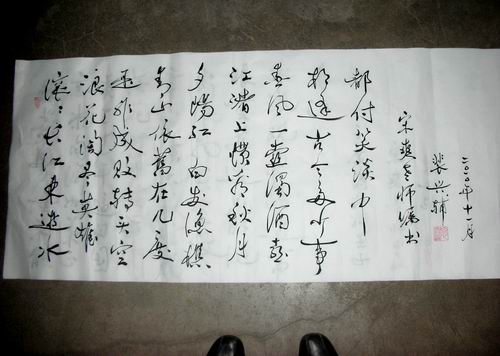 滚〻长江東逝水
浪花淘尽英雄
是非成敗转头空
青山依舊在几度
夕陽红白发渔樵
江渚上慣看秋月
春风一壶濁酒喜
相逢古今多少事
都付笑谈中
宋燕老师嘱书
裴兴辅
二〇一〇年十一月